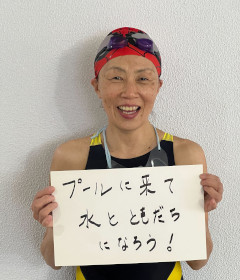 プールに来て
水とともだち
になろう!